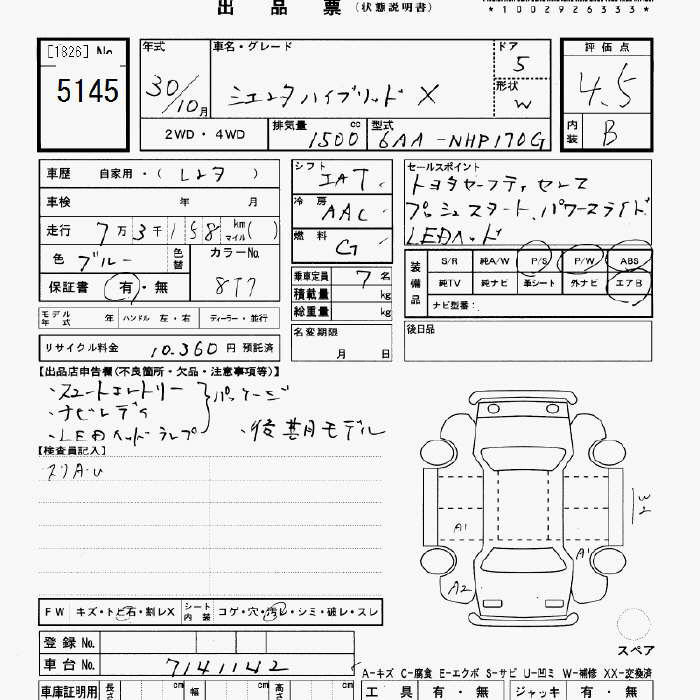 出品票(状態説明書)
*1002926333*
[1826] No
5145
年式
30/10月
車名・グレード
シエンタハイブリッド X
ドア
5
形状
W
評価点
4.5
内装
B
2WD・4WD
排気量
1500 cc
型式
6AA-NHP170G
車歴 自家用・(レンタ)
車検 年 月
走行 7万3千158 km マイル( )
色 ブルー
色替
カラーNo.
8T7
保証書 有・無
シフト IAT
冷房 AAC
燃料 G
セールスポイント
トヨタセーフティセンス
プッシュスタート、パワースライド
LEDヘッド
装備品
S/R 純A/W P/S P/W ABS
純TV 純ナビ 革シート 外ナビ エアB
ナビ型番:
乗車定員 7 名
積載量 kg
総重量 kg
モデル年式 年 ハンドル 左・右 ディーラー・並行
名変期限
月 日
後日品
リサイクル料金 10,360 円 預託済
【出品店申告欄(不良箇所・欠品・注意事項等)】
・スマートエントリー
・ナビレディ
パッケージ
・LEDヘッドランプ ・後期モデル
【検査員記入】
スリA-U
A1
A1
A2
W2
FW キズ・トビ石・割レX シート内装 コゲ・穴・汚レ・シミ・破レ・スレ
スペア
登録 No.
車台 No. 7141142
A-キズ C-腐食 E-エクボ S-サビ U-凹ミ W-補修 XX-交換済
車庫証明用 長さ cm 幅 cm 高さ cm
工具 有・無 ジャッキ 有・無